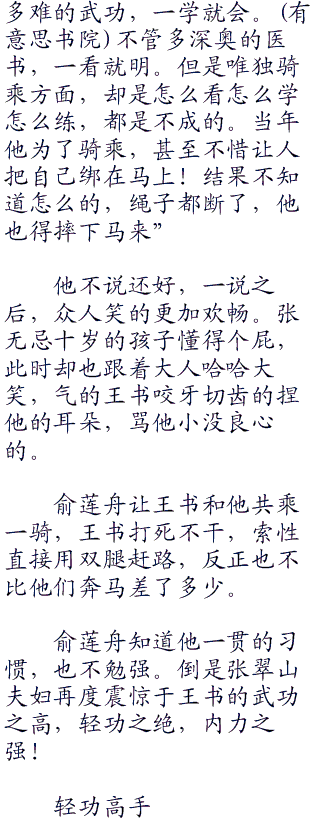 多难的武功，一学就会。(有
意思书院)不管多深奥的医
书，一看就明。但是唯独骑
乘方面，却是怎么看怎么学
怎么练，都是不成的。当年
他为了骑乘，甚至不惜让人
把自己绑在马上！结果不知
道怎么的，绳子都断了，他
也得摔下马来”
他不说还好，一说之
后，众人笑的更加欢畅。张
无忌十岁的孩子懂得个屁，
此时却也跟着大人哈哈大
笑，气的王书咬牙切齿的捏
他的耳朵，骂他小没良心
的。
俞莲舟让王书和他共乘
一骑，王书打死不干，索性
直接用双腿赶路，反正也不
比他们奔马差了多少。
俞莲舟知道他一贯的习
惯，也不勉强。倒是张翠山
夫妇再度震惊于王书的武功
之高，轻功之绝，内力之
强！
轻功高手